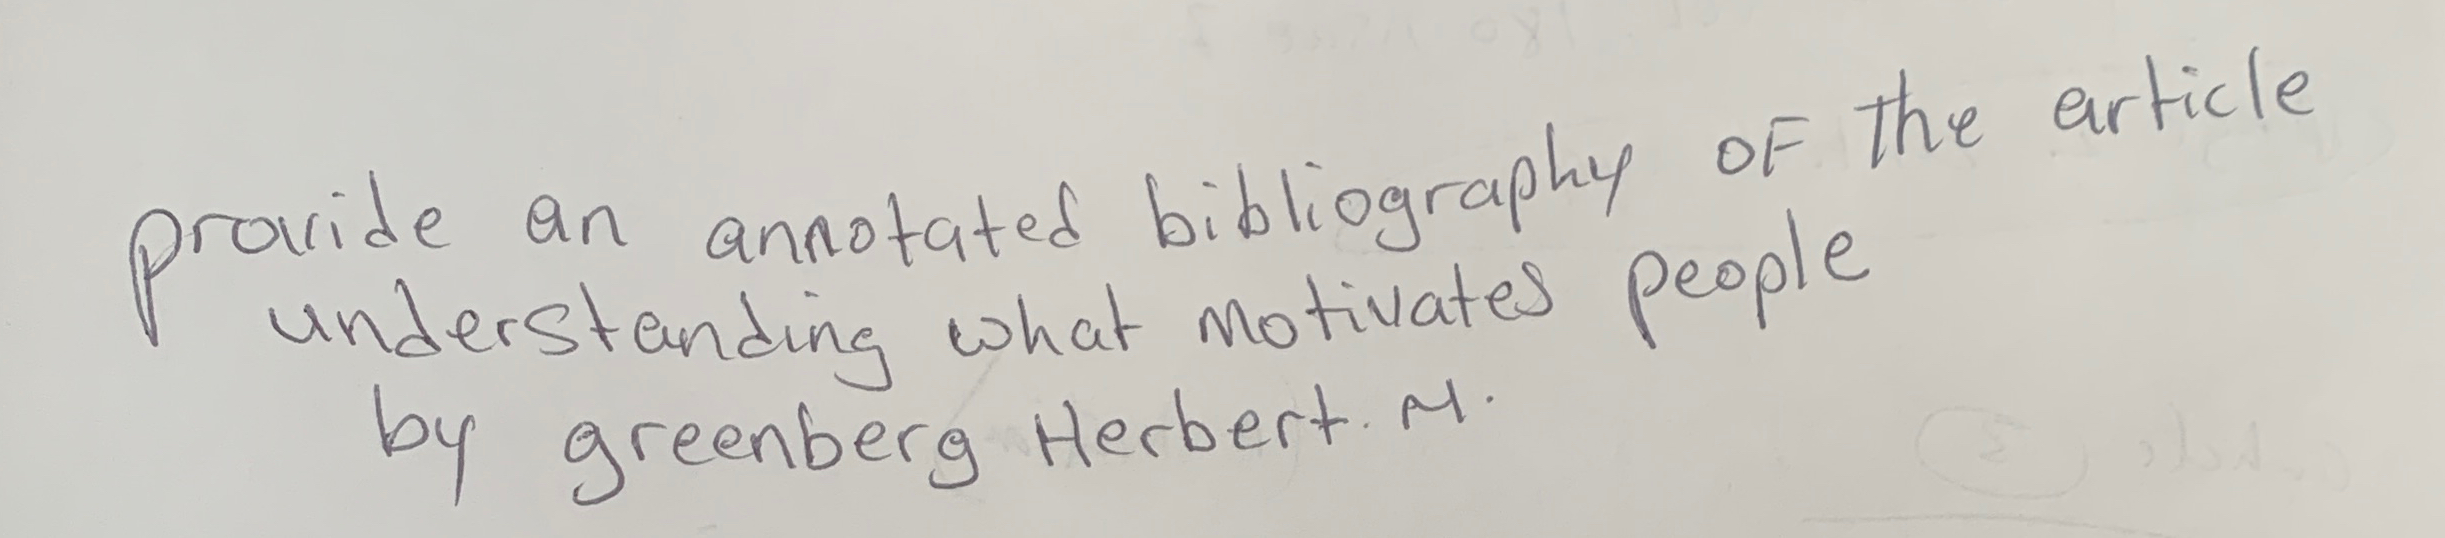 provide an annotated bibliography of the article
understanding what motivates people
by greenberg Herbert. M.